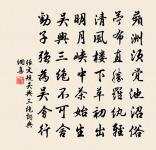 蘋洲須覺池沼俗
苧布直勝羅紈輕
清風樓下草初出
明月峽中茶始生
吳興三絕不可舍
勸子強為吳會行
張文規吳興三絕詞典